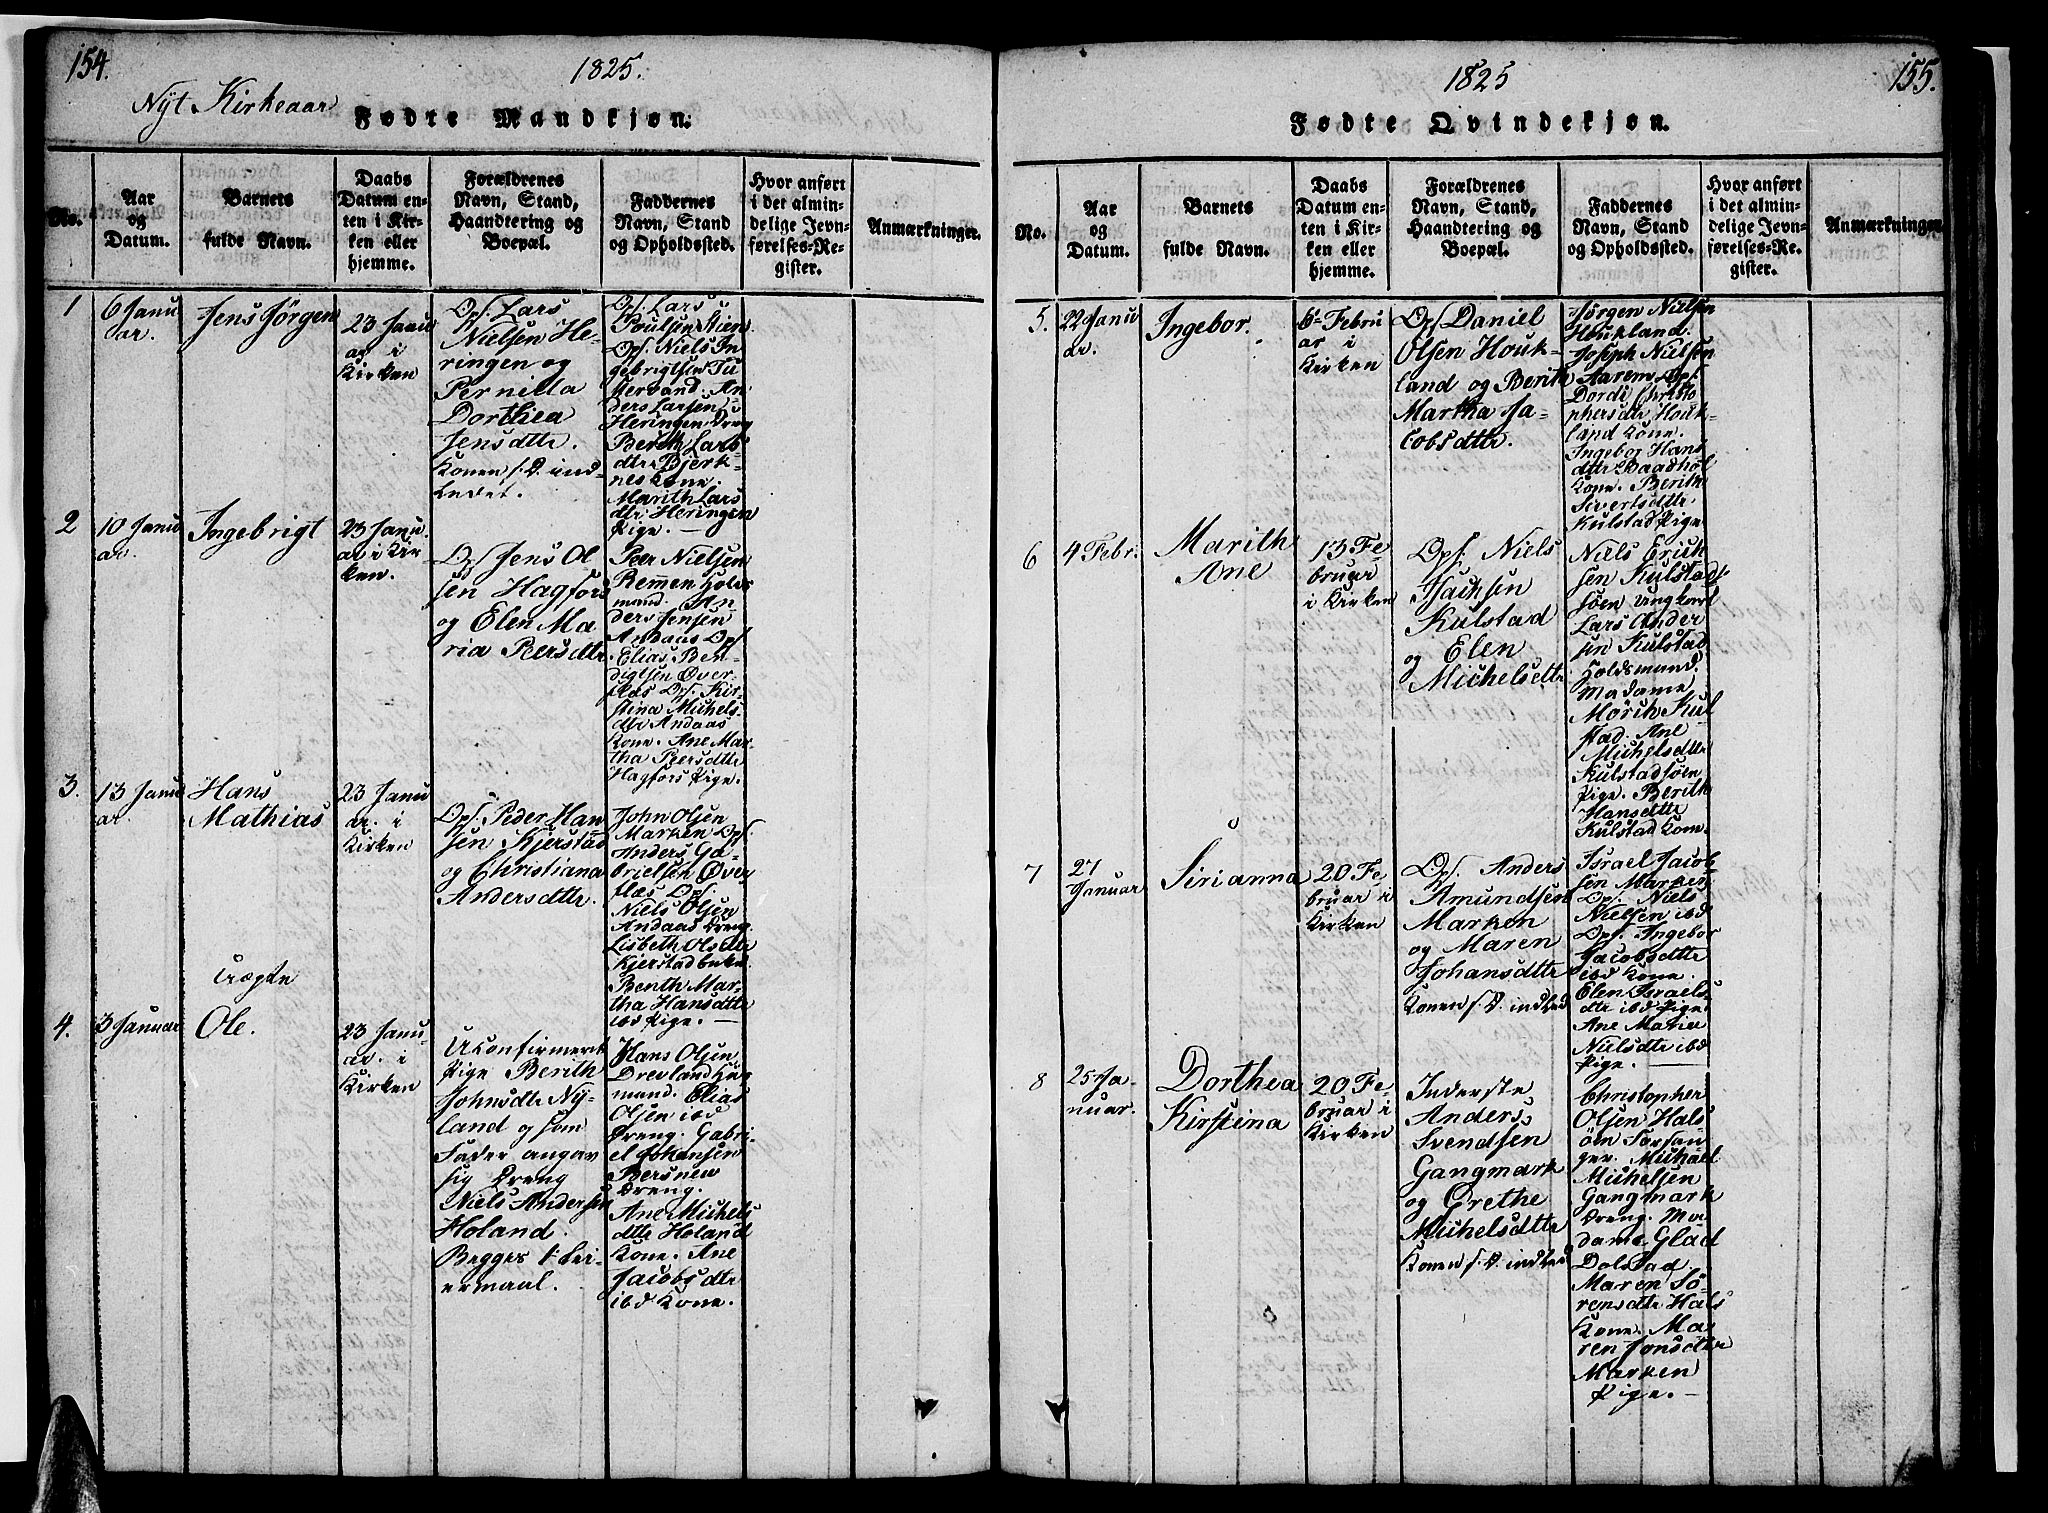 154.
1825.
Nyt Kirkeaar
Fødte Mandkjøn.
No.
Aar
og
Datum.
Barnets
fulde Navn.
Daabs
Datum en-
ten i Kir-
ken eller
hjemme.
Forældrenes
Navn, Stand,
Haandtering og
Boepæl.
Faddernes
Navn, Stand
og Opholdssted.
Hvor anført
i det almin-
delige Jevn-
førelses-Re-
gister.
Anmærkninger.
1
6 Janu
ar.
Jens Jörgen
23 Janu
ar i
Kirken
Ops. Lars
Nielsen He-
ringen og
Pernilla
Dorthea
Jensdttr.
Konen s. D. ind-
ledet.
Ops. Lars
Poulsen Stien
Ops. Niels In
gebrigtsen Tu
stervand. An
ders Larsen
Heringen Dreng
Berith Lars
dttr Bjerk-
nes Kone.
Marith Lars
dttr Heringen
Pige. —
2
10 Janu
ar.
Ingebrigt
23 Janu.
ar i Kir
ken.
Ops Jens Ol
sen Hagfors
og Elen Ma
ria Peersdttr
Peer Nielsen
Remmen Holds
mand. An
ders Jensen
Andaas Ops
Elias Ben-
digtsen Øver
flæs Ops. Kir-
stina Michels
dttr Andaas
Kone. Ane Mar-
tha Peersdttr
Hagfors Pige.
3.
13 Janu
ar.
Hans
Mathias
23 Janu
ar. i
Kirken
Ops. Peder Han
sen Kjerstad
og Christiana
Andersdttr.
John Olsen
Marken Ops.
Anders Ga-
brielsen Øver
flæs Ops.
Niels Olsen
Andaas Dreng.
Lisbeth Olsdttr
Kjerstad
Berith Mar-
tha Hansdttr
ibd Pige. —
Uægte
4.
3 Januar
Ole.
23 Janu
ar. i
Kirken
Ukonfirmert
Pige Berith
Johnsdttr Ny-
land og som
Fader angav
sig Dreng
Niels Andersen
Holand.
Begges 1ste Lei-
ermaal.
Hans Olsen
Drevland Huu
mand. Elias
Olsen ibd
Dreng. Gabri-
el Johansen
Bersnew
Dreng.
Ane Michels
dttr Holand
Kone. Ane
Jacobsdttr
ibd Kone.
1825
155.
Fødte Qvindekjøn.
No.
Aar
og
Datum.
Barnets
fulde Navn.
Daabs
Datum en-
ten i Kir-
ken eller
hjemme.
Forældrenes
Navn, Stand,
Haandtering og
Boepæl.
Faddernes
Navn, Stand
og Opholdssted.
Hvor anført
i det almin-
delige Jevn-
førelses-Re-
gister.
Anmærkninger.
5.
22 Janu
ar.
Ingebor.
6 Febru
ar i
Kirken
Ops Daniel
Olsen Houk-
land og Berith
Martha Ja-
cobsdttr.
Jörgen Nielsen
Houkland.
Joseph Nielsen
Aarem Ops.
Dordi Christo
phersdtr Houk-
land Kone.
Ingebor Hans
dttr Baadhol
Kone. Berith
Sivertsdttr
Kulstad Pige
6
4 Febr.
Marith
Ane
13 Fe
bruar
i Kirken
Ops. Niels
Isachsen
Kulstad
og Elen
Michelsdttr
Niels Erich
sen Kulstad
söen Ungkarl
Lars Ander
sen Kulstad
Holdsmand.
Madame
Mörch Kul
stad. Ane
Michelsdttr
Kulstadsöen
Pige. Berith
Hansdttr
Kulstad Kone.
7
27
Januar
Sirianna
20 Fe
bruar i
Kirken
Ops. Anders
Amundsen
Marken
og Maren
Johansdttr
Konen s. D. indled
Israel Jacob
sen Marken
Ops. Niels
Nielsen ibd
Ops. Ingebor
Jacobsdttr
ibd Kone.
Elen Israels
dttr ibd Pige.
Ane Maria
Nielsdttr ibd
Pige. —
8
25 Ja-
nuar.
Dorthea
Kirstina
20 Fe
bruar i
Kirken
Inderste
Anders
Svendsen
Gangmark
og Grethe
Michelsdttr
Konen s. D. indled
Christopher
Olsen Hals
öm
Michael
Michelsen
Gangmark
Dreng. Ma
dame Glad
Dolstad
Maren Sö-
rensdttr Hals
Kone. Ma
ren Jonsdttr
Marken
Pige. —